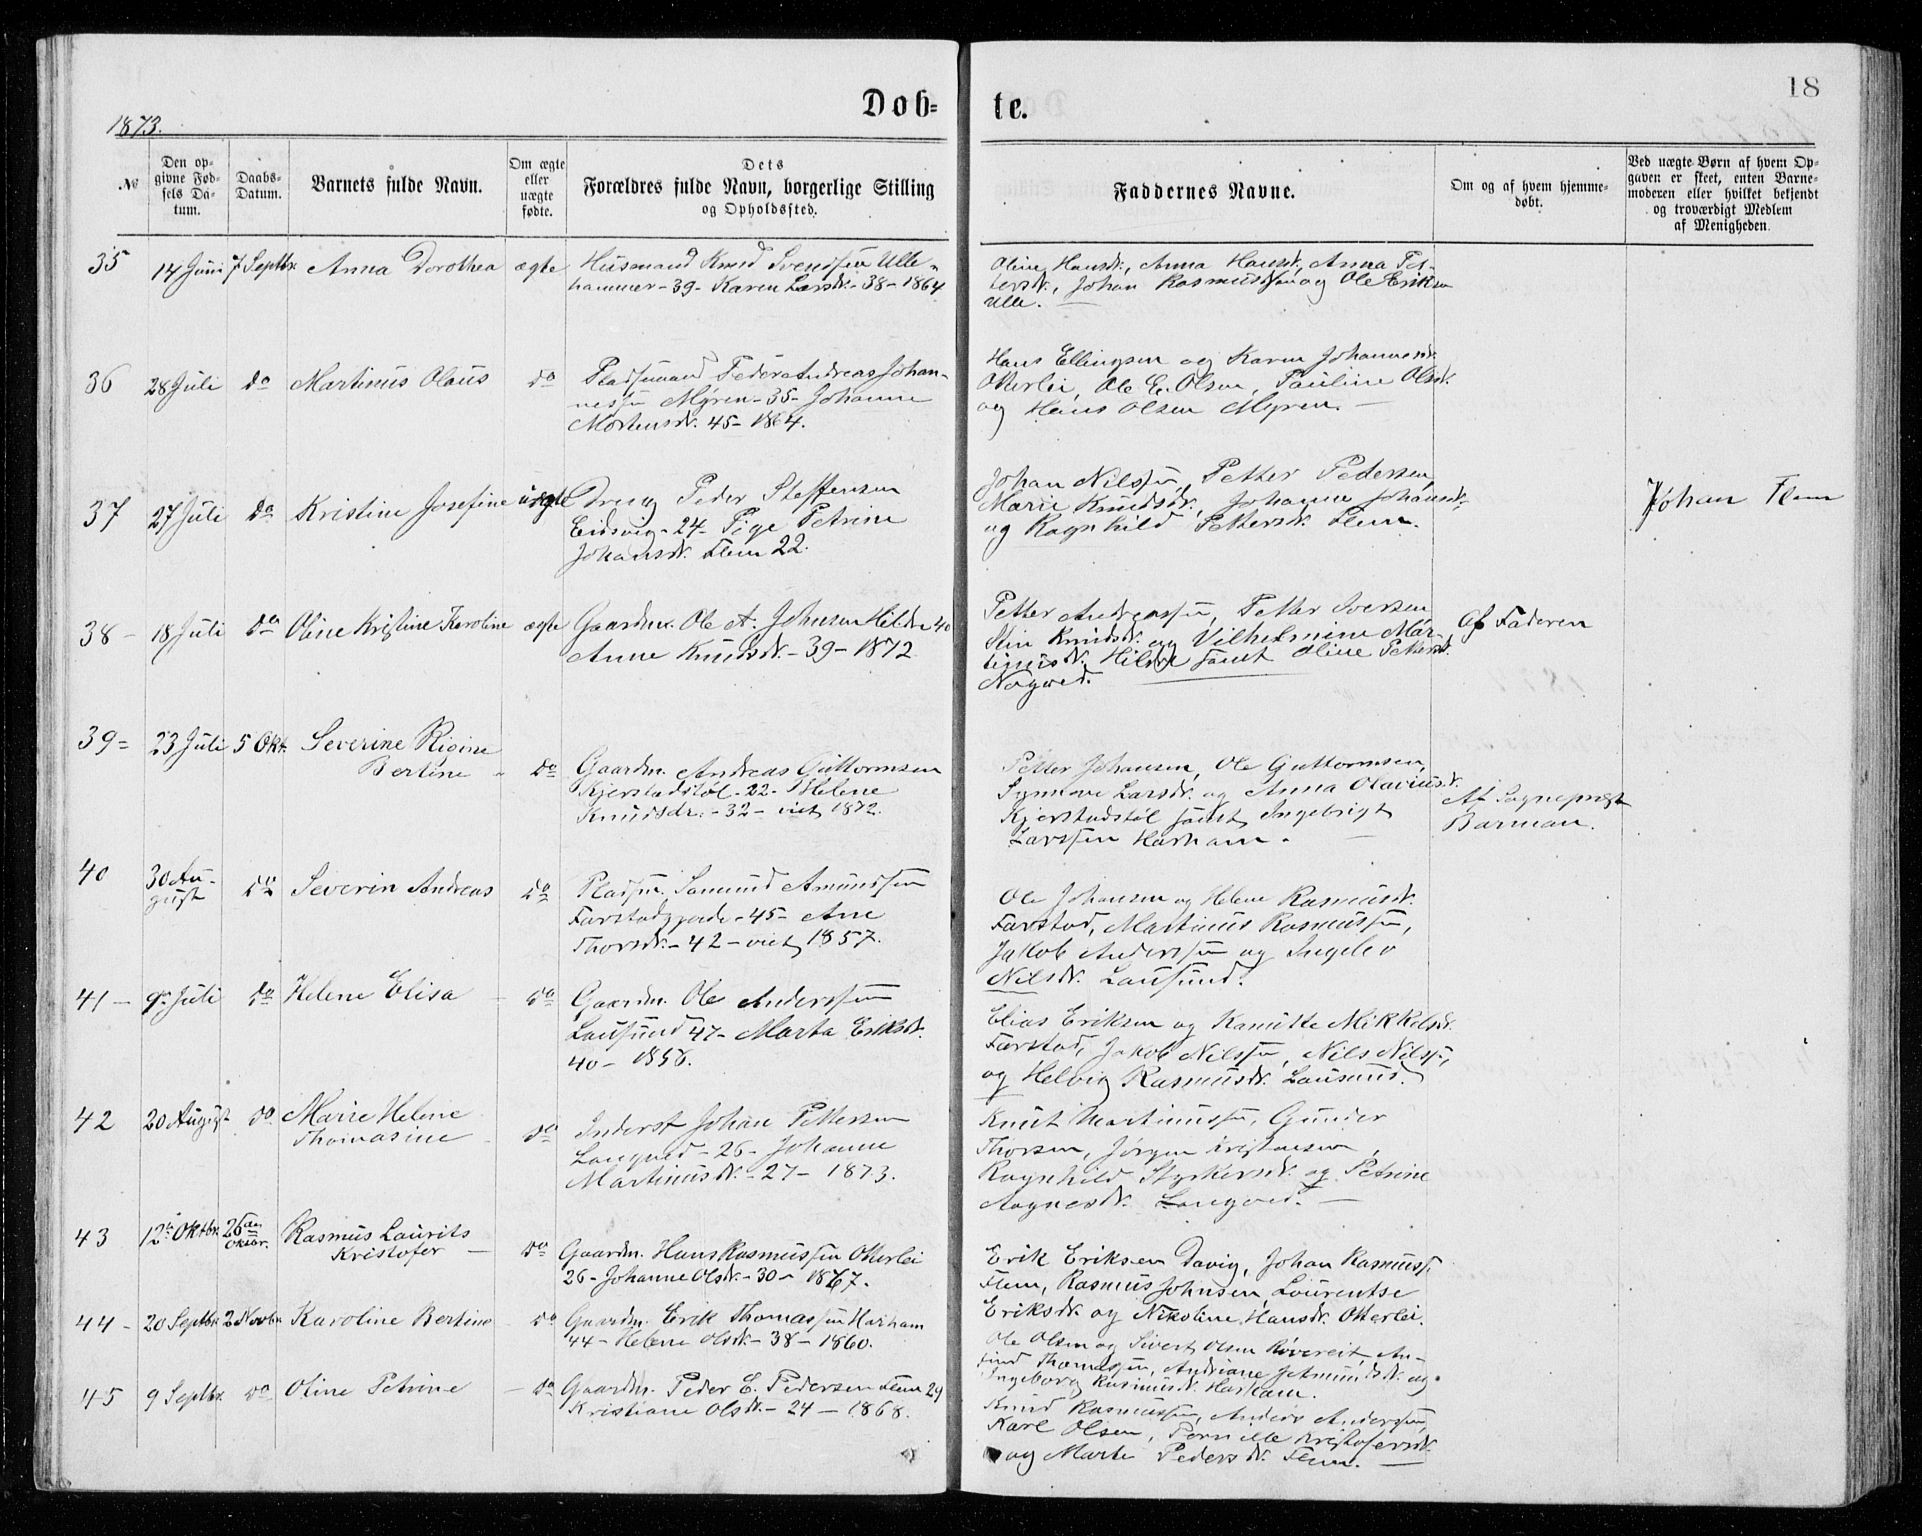 Døb-
te.
18
1873.
№
Den op-
givne Fød-
sels Da-
tum.
Daabs-
Datum.
Barnets fulde Navn.
Om ægte
eller
uægte
fødte.
Dets
Forældres fulde Navn, borgerlige Stilling
og Opholdssted.
Faddernes Navne.
Om og af hvem hjemme-
døbt.
Ved uægte Børn af hvem Op-
gaven er skeet, enten Barne-
moderen eller hvilket bekjendt
og troværdigt Medlem
af Menigheden.
35 14 Juni 7 Septbr. Anna Dorothea ægte Husmand Knud Svendsen Ulle-
hammer - 39 - Karen Larsdr. - 38 - 1864
Oline Hansdr., Anna Hansdr., Anna Pet-
tersdr., Johan Rasmussen og Ole Eriksen
Ulle. -
36 28 Juli do Martinus Olaus do Pladsmand Peder Andreas Johan-
nessen Myren - 35 - Johanne
Mortensdr. 45 - 1864.
Hans Ellingsen og Karen Johannesdr.
Otterlei, Ole E. Olsen, Pauline Olsdr.
og Hans Olsen Myren. -
37 27 Juli do Kristine Josefine uægte Dreng Peder Steffensen
Eidsvig - 24 - Pige Petrine
Johansdr. Flem 22.
Johan Nilssen, Petter Pedersen,
Marie Knudsdr., Johanne Johansdr.
og Ragnhild Pettersdr. Flem.
Johan Flem
38 - 18 Juli do Oline Kristine Karoline ægte Gaardm. Ole A. Johnsen Hildre 40
Anne Knudsdr. - 39 - 1872
Petter Andreassen, Petter Iversen,
Stin Knudsdr. og Vilhelmine Mar-
tinusdr. Hildre samt Oline Pettersdr.
Nogved.
Af Faderen
39 - 23 Juli 5 Okt. Severine Rigine
Bertine - do Gaardm. Andreas Guttormsen
Kjerstadstøl - 22 - Helene
Knudsdr. - 32 - viet 1872.
Petter Johansen, Ole Guttormsen,
Synnøve Larsdr. og Anna Olaviusdr.
Kjerstadstøl samt Ingebrigt
Larssen Harham -
Af Sogneprest
Barman.
40 30 Au-
gust do Severin Andreas do Pladsm. Samund Amundsen
Farstadgjerde - 45 - Ane
Thorsdr. - 42 - viet 1857.
Ole Johansen og Helene Rasmusdr.
Farstad, Martinus Rasmussen,
Jakob Anderssen og Ingelev
Nilsdr. Lausund.
41 - 9de Juli do Helene Elisa - do Gaardm. Ole Anderssen
Lausund 47 - Marta Eriksdr.
40 - 1858.
Elias Eriksen og Kanutte Mikkelsdr.
Farstad, Jakob Nilssen, Nils Nilss.,
og Helvig Rasmusdr. Lausund.
42 20 August do Marie Helene
Thomasine - do Inderst Johan Pettersen
Longved - 26 - Johanne
Martinusdr. - 27 - 1873.
Knut Martinussen, Gunder
Thorsen, Jørgen Kristensen,
Ragnhild Styrkersdr. og Petrine
Aagnesdr. Longved. -
43 12te Oktbr. 26de
Oktbr. Rasmus Laurits
Kristofer - do Gaardm. Hans Rasmussen Otterlei
26 - Johanne Olsdr. - 30 - 1867.
Erik Eriksen Davig, Johan Rasmuss.
Flem, Rasmus Johnsen, Laurentse
Eriksdr. og Nikoline Hansdr. Otterlei.
44 - 20 Septbr. 2 Novbr. Karoline Bertine - do Gaardm. Erik Thomassen Harham
44 - Helene Olsdr. - 38 - 1860.
Ole Olsen og Sivert Olsen Røvereit, An-
find Thomassen, Andriane Jetmundsdr. og
Ingeborg Rasmusdr. Harham.
45 9 Septbr. do Oline Petrine - do Gaardm. Peder E. Pedersen Flem 29
Kristiane Olsdr. - 24 - 1868.
Knud Rasmussen, Anders Anderssen,
Karl Olsen, Pernille Kristofersdr.
og Marte Pedersdr. Flem. -